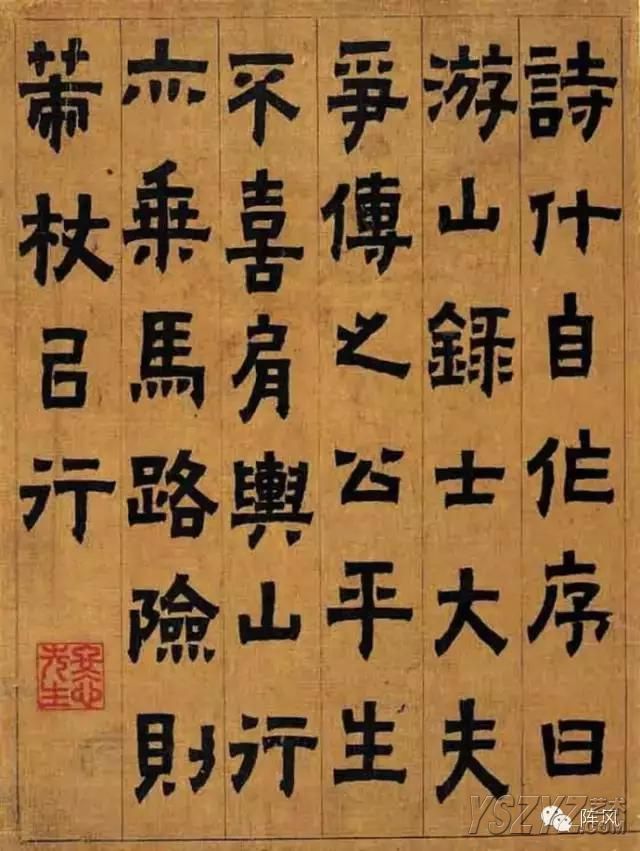 詩什自作序曰
游山錄士大夫
爭傳之公平生
不喜肩輿山行
亦乘馬路險則
策杖㠯行
先生
YSZYZ 艺术
阵风